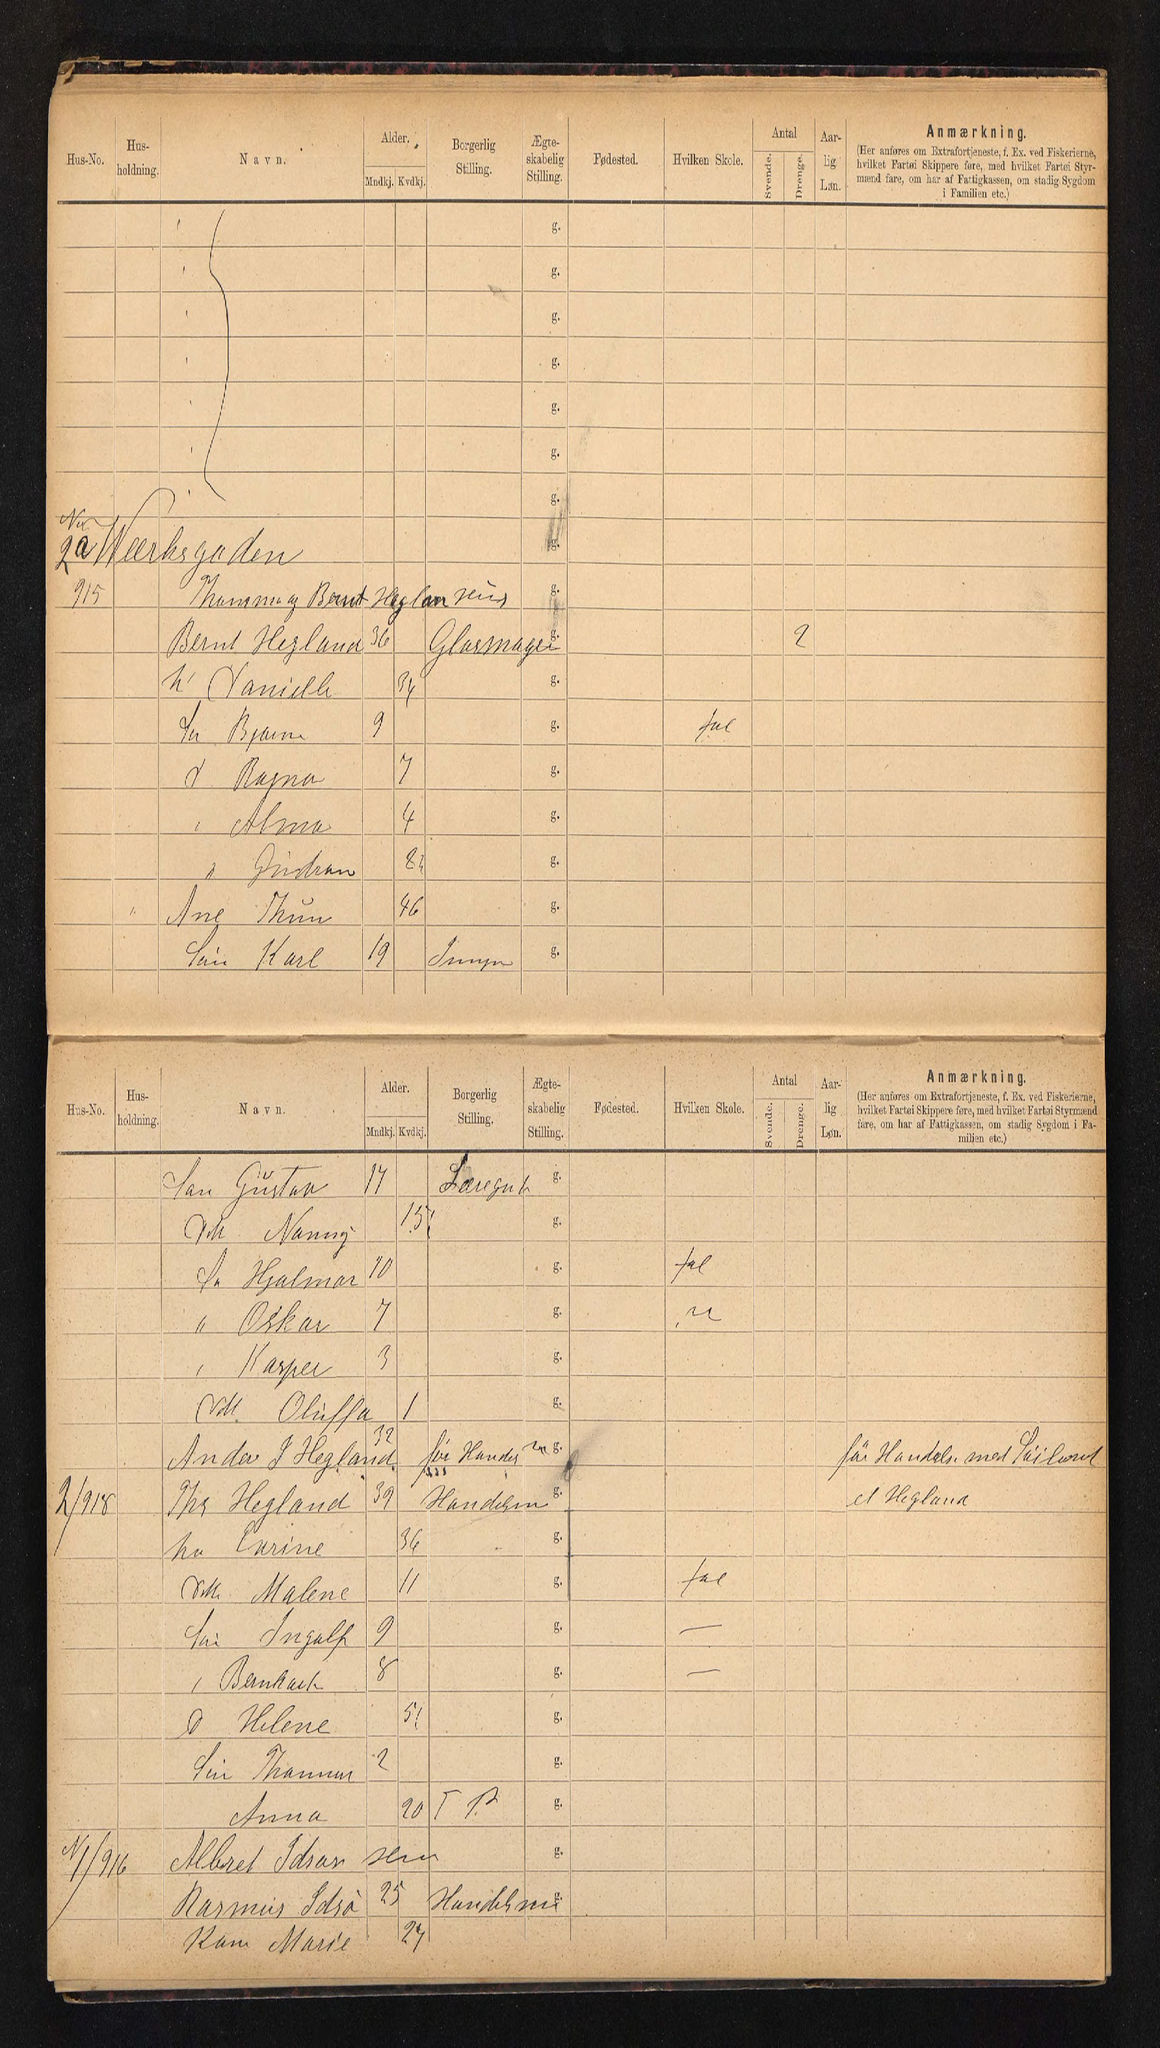 Hus-No. Hus-holdning. Navn. Alder. Mndkj. Kvdkj. Borgerlig Stilling. Ægte-skabelig Stilling. Fødested. Hvilken Skole. Antal Svende. Drenge. Aar-lig Løn. Anmærkning.
(Her anføres om Extrafortjeneste, f. Ex. ved Fiskerierne, hvilket Fartøi Skippere føre, med hvilket Fartøi Styr-mænd fare, om har af Fattigkassen, om stadig Sygdom i Familien etc.)
g.
g.
g.
g.
g.
g.
g.
2a Værksgaden g.
915 Bernt g.
Bernt Hegland 36 Glasmager g. 2
Danielle 34 g.
Bjarne 9 g. fol
D Ragna 7 g.
Alma 4 g.
" Gudrun g.
" Ane Thun 46 g.
Søn Karl 19 g.
Hus-No. Hus-holdning. Navn. Alder. Mndkj. Kvdkj. Borgerlig Stilling. Ægte-skabelig Stilling. Fødested. Hvilken Skole. Antal Svende. Drenge. Aar-lig Løn. Anmærkning.
(Her anføres om Extrafortjeneste, f. Ex. ved Fiskerierne, hvilket Fartøi Skippere føre, med hvilket Fartøi Styrmænd fare, om har af Fattigkassen, om stadig Sygdom i Fa-milien etc.)
Søn Gustav 17 g.
Dtt Nanny 15 g.
Sn Hjalmar 10 g. fol
" Oskar 7 g. "
" Kasper 3 g.
Dtt. Oluffa 1 g.
Hegland 32 g.
2/918 Ths Hegland 39 Handelsm g. et Hegland
36 g.
Dtt. Malene 11 g. fol
Søn Ingolf 9 g. —
" 8 g. —
D Helene 5 g.
Søn 2 g.
Anna 20 T P g.
N 1/916 g.
Rasmus Idsø 25 g.
Kone Marie 27